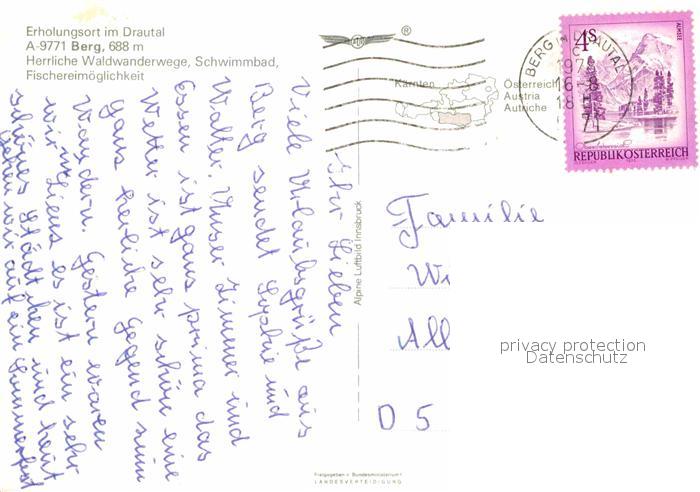 Erholungsort im Drautal
A-9771 Berg, 688 m
Herrliche Waldwanderwege, Schwimmbad,
Fischereimöglichkeit
Ihr Lieben
Viele Urlaubsgrüße aus
Berg sendet Sophie und
Walter. Unser Zimmer und
Essen ist ganz prima das
Wetter ist sehr schön eine
ganz herliche Gegend zum
Wandern. Gestern waren
wir in Lienz es ist ein sehr
schönes Städtchen und heut
gehen wir auf ein Sommerfest
Alpine Luftbild Innsbruck
®
Kärnten
Österreich
Austria
Autriche
BERG im DRAUTAL
4S
ALMSEE
REPUBLIK ÖSTERREICH
Familie
Wi
All
D 5
privacy protection
Datenschutz
Freigegeben v. Bundesministerium f.
LANDESVERTEIDIGUNG